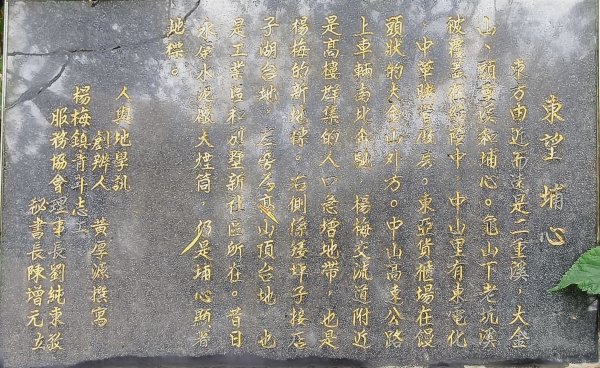 東望 埔心
東方由近而遠是二重溪，大金
山、頭重溪和埔心。龜山下老坑溪
彼覆蓋在綠陰中 中山里有東電化
，中華映管廠房。東亞貨櫃場在饅
頭狀的大金山外方。中山高速公路
上車輛南北奔馳 楊梅交流道附近
是高樓群集的人口急增地帶，也是
楊梅的新地標。右側係矮坪子接店
子湖台地，左旁為高山頂台地 也
是工業區和別墅新社區所在。昔日
永原水泥廠大煙筒，仍是埔心顯著
地標。
人與地學訊
創辦人 黃厚源撰寫
楊梅鎮青斗志工
服務協會理事長劉純東發
秘書長陳增元立